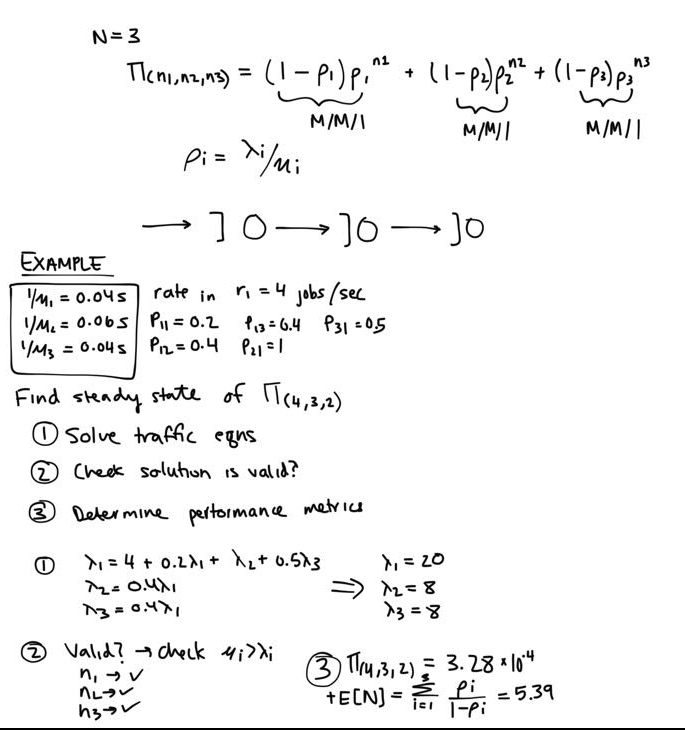 N=3
Π(n1,n2,n3) = (1-ρ1)ρ1^n1 + (1-ρ2)ρ2^n2 + (1-ρ3)ρ3^n3
M/M/1 M/M/1 M/M/1
ρi = λi/μi
→ ]O → ]O → ]O
EXAMPLE
1/μ1 = 0.04s rate in r1 = 4 jobs/sec
1/μ2 = 0.06s P11 = 0.2 P13 = 0.4 P31 = 0.5
1/μ3 = 0.04s P12 = 0.4 P21 = 1
Find steady state of Π(4,3,2)
① Solve traffic eqns
② Check solution is valid?
③ Determine performance metrics
① λ1 = 4 + 0.2λ1 + λ2 + 0.5λ3 λ1 = 20
λ2 = 0.4λ1 ⇒ λ2 = 8
λ3 = 0.4λ1 λ3 = 8
② Valid? → check μi>λi
n1 → ✓
n2 → ✓
n3 → ✓
③ Π(4,3,2) = 3.28 × 10^-4
+E[N] = Σ_{i=1}^{3} ρi/(1-ρi) = 5.39